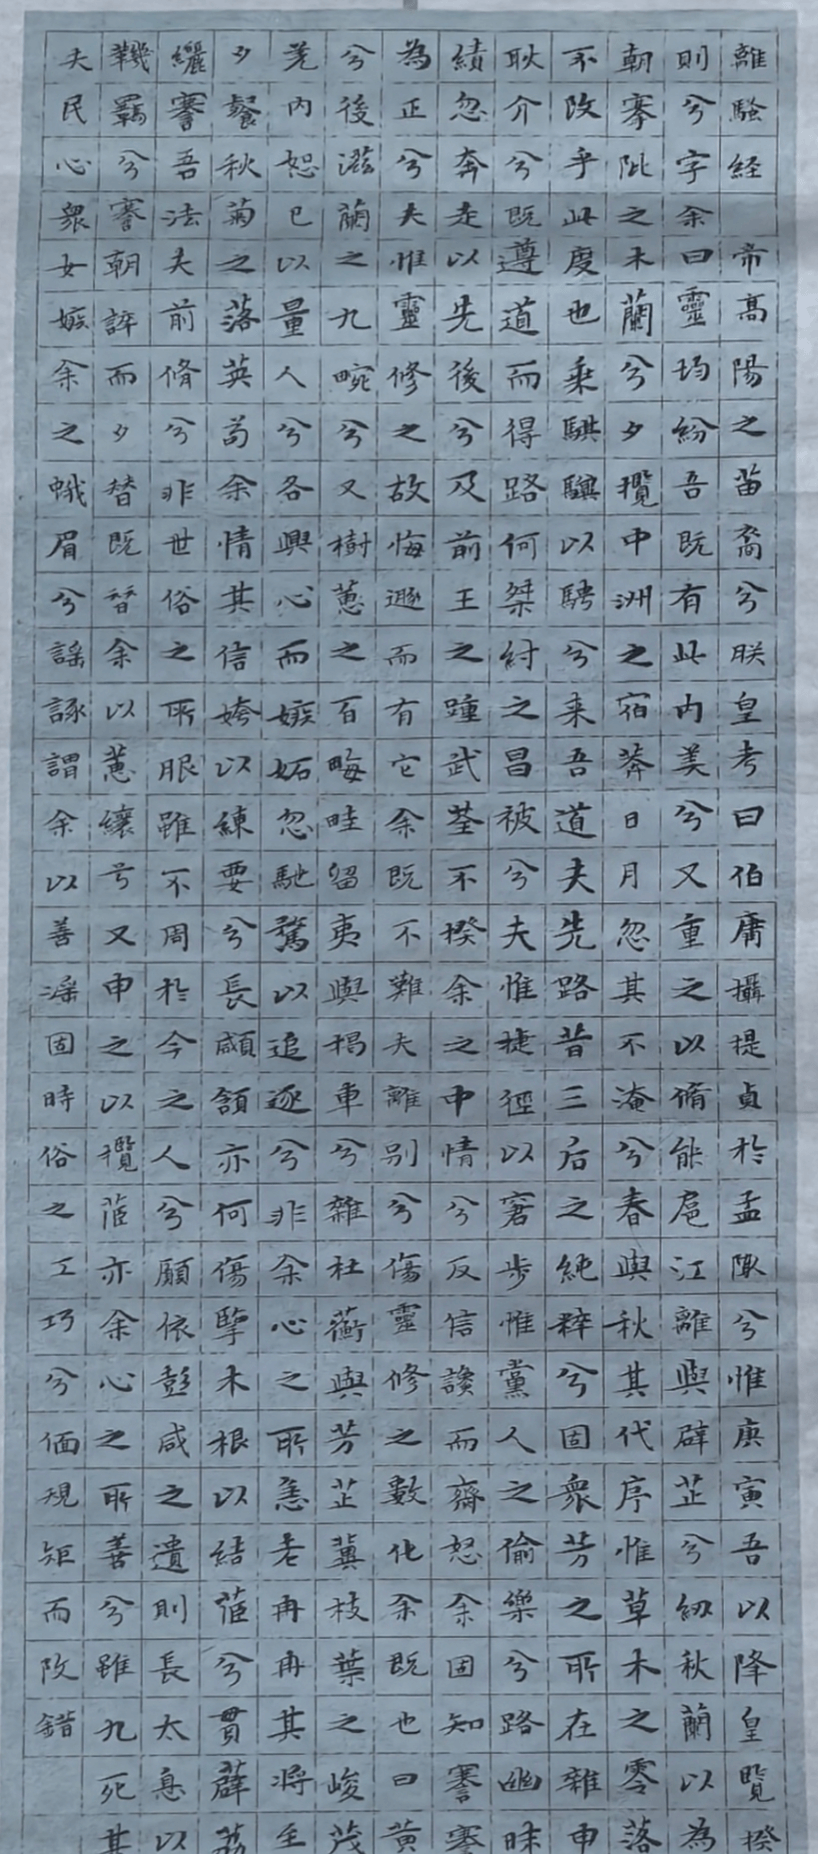 離騷経　帝高陽之苗裔兮朕皇考曰伯庸攝提貞於孟陬兮惟庚寅吾以降皇覽揆
則兮字余曰靈均紛吾既有此内美兮又重之以脩能扈江離與辟芷兮紉秋蘭以為
朝搴阰之木蘭兮夕攬中洲之宿莽日月忽其不淹兮春與秋其代序惟草木之零落
不改乎此度也乗騏驥以騁兮来吾道夫先路昔三后之純粹兮固衆芳之所在雜申
耿介兮既遵道而得路何桀紂之昌被兮夫惟捷徑以窘步惟黨人之偷樂兮路幽昧
績忽奔走以先後兮及前王之踵武荃不揆余之中情兮反信讒而齋怒余固知謇謇
為正兮夫惟靈修之故悔遯而有它余既不難夫離别兮傷靈修之數化余既也曰黄
兮後滋蘭之九畹兮又樹蕙之百畮畦留夷與揭車兮雜杜蘅與芳芷冀枝葉之峻茂
羌内恕已以量人兮各興心而嫉妬忽馳騖以追逐兮非余心之所急老冉冉其將至
夕餐秋菊之落英苟余情其信姱以練要兮長顑頷亦何傷擥木根以結茝兮貫薜荔
纚謇吾法夫前脩兮非世俗之所服雖不周於今之人兮願依彭咸之遺則長太息以
鞿羈兮謇朝誶而夕替既替余以蕙纕兮又申之以攬茝亦余心之所善兮雖九死其
夫民心衆女嫉余之蛾眉兮謠諑謂余以善淫固時俗之工巧兮偭規矩而改錯